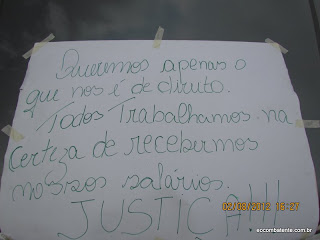 Queremos apenas o
que nos é de direito.
Todos Trabalhamos na
certeza de recebermos
nossos salários.
JUSTIÇA!!!
03/08/2012 16:27
eccombatente.com.br